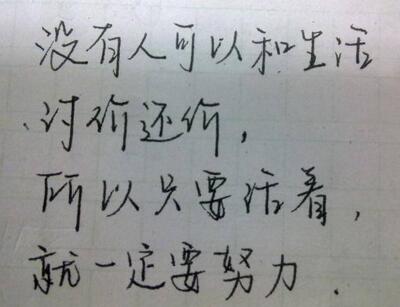 没有人可以和生活
讨价还价，
所以只要活着，
就一定要努力．